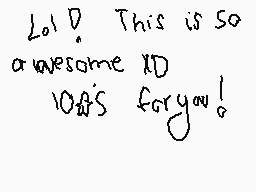 Lol! This is so
awesome XD
10☆'s for you!